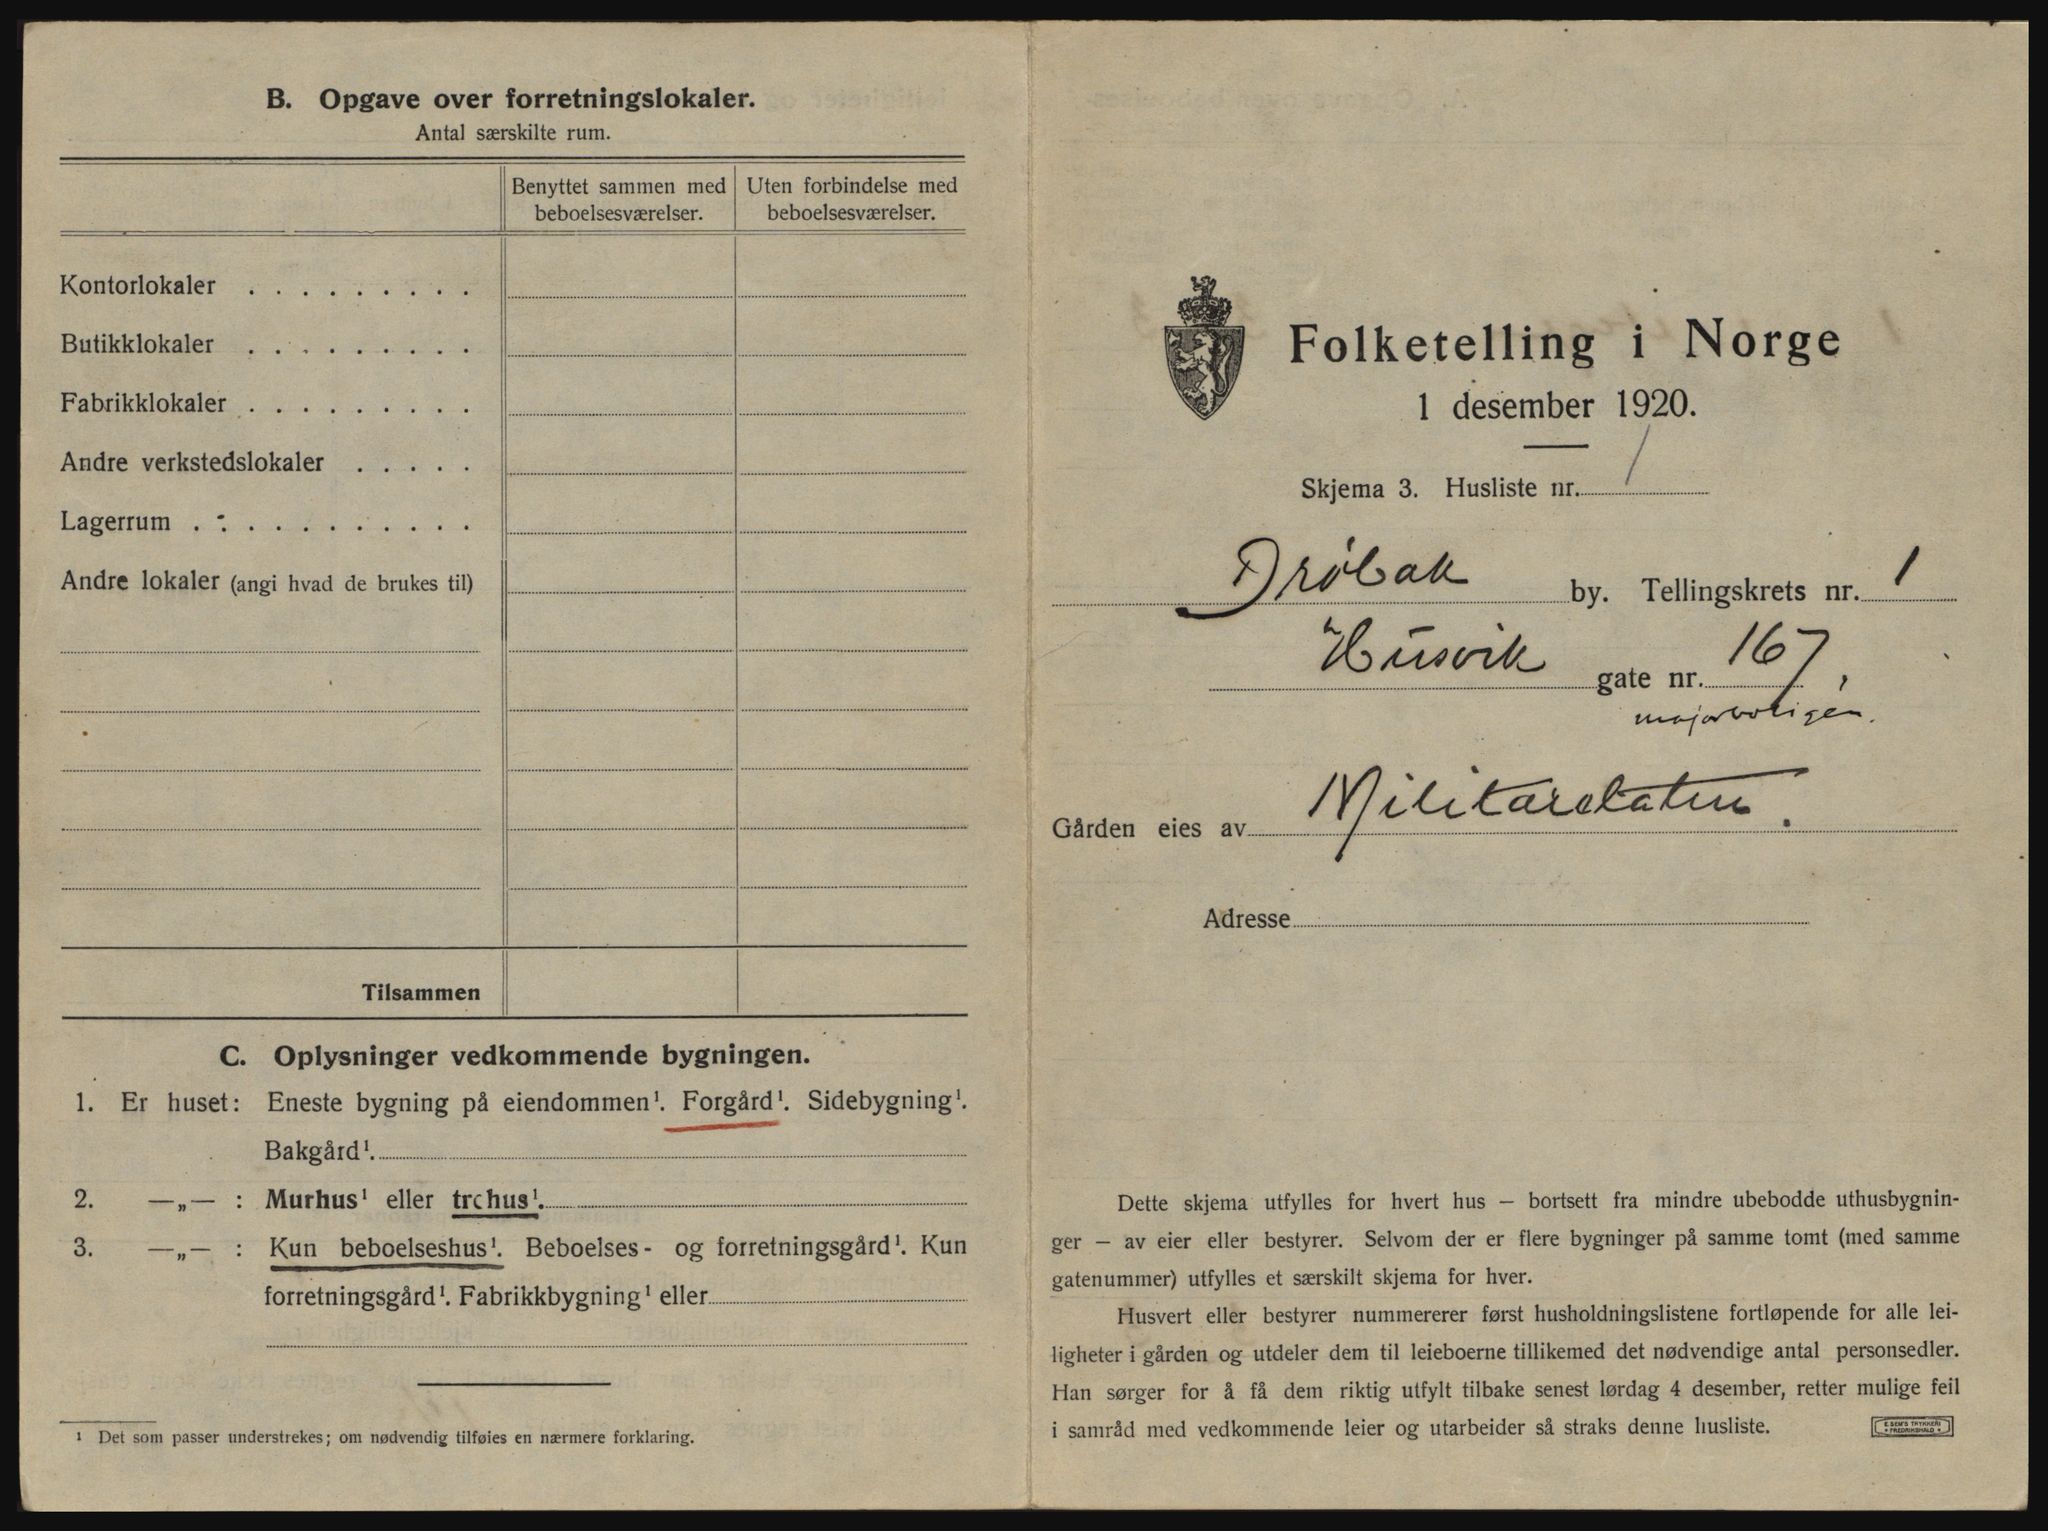 B. Opgave over forretningslokaler.
Antal særskilte rum.
Benyttet sammen med beboelsesværelser.
Uten forbindelse med beboelsesværelser.
Kontorlokaler . . . . . . . . .
Butikklokaler . . . . . . . . .
Fabrikklokaler . . . . . . . . .
Andre verkstedslokaler . . . . .
Lagerrum . . . . . . . . . . .
Andre lokaler (angi hvad de brukes til)
Tilsammen
C. Oplysninger vedkommende bygningen.
1. Er huset: Eneste bygning på eiendommen¹. Forgård¹. Sidebygning¹.
Bakgård¹.
2. —„— : Murhus¹ eller trehus¹.
3. —„— : Kun beboelseshus¹. Beboelses- og forretningsgård¹. Kun
forretningsgård¹. Fabrikkbygning¹ eller
¹ Det som passer understrekes; om nødvendig tilføies en nærmere forklaring.
Folketelling i Norge
1 desember 1920.
Skjema 3. Husliste nr. 1
Drøbak by. Tellingskrets nr. 1
Husvik gate nr. 167,
majorboligen.
Gården eies av Militæretaten.
Adresse
Dette skjema utfylles for hvert hus — bortsett fra mindre ubebodde uthusbygnin-
ger — av eier eller bestyrer. Selvom der er flere bygninger på samme tomt (med samme
gatenummer) utfylles et særskilt skjema for hver.
Husvert eller bestyrer nummererer først husholdningslistene fortløpende for alle lei-
ligheter i gården og utdeler dem til leieboerne tillikemed det nødvendige antal personsedler.
Han sørger for å få dem riktig utfylt tilbake senest lørdag 4 desember, retter mulige feil
i samråd med vedkommende leier og utarbeider så straks denne husliste.
E. SEM'S TRYKKERI
FREDRIKSHALD